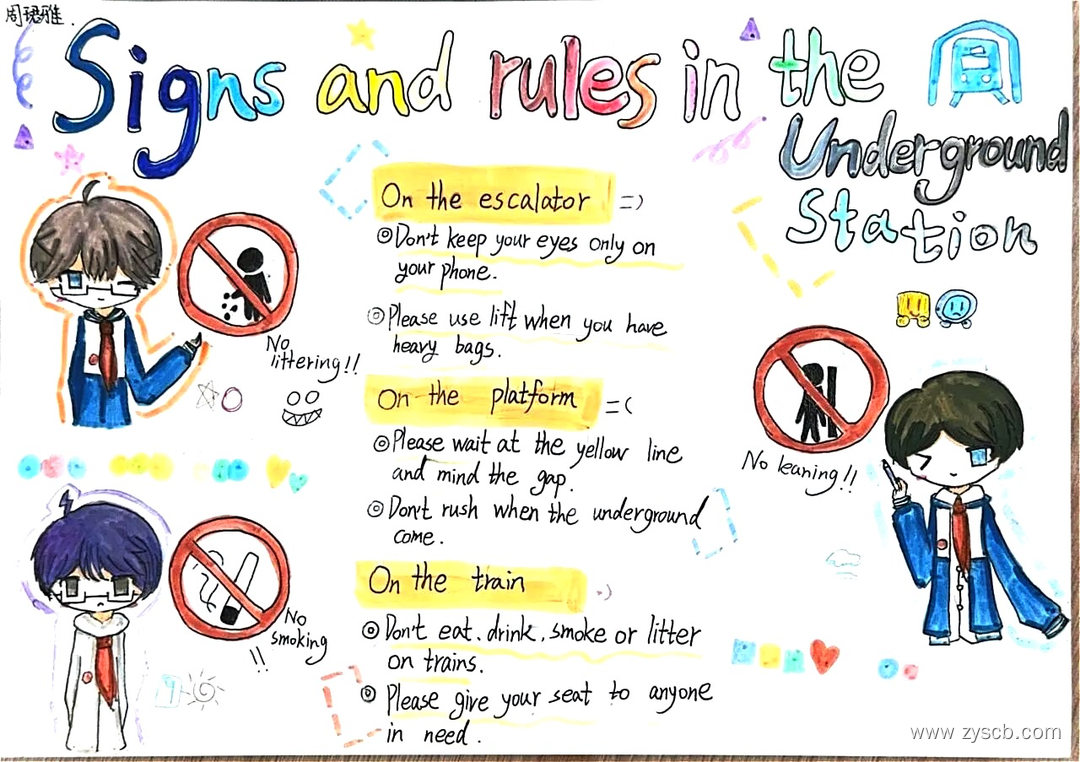 周珺雅.
Signs and rules in the
Underground
Station
On the escalator =)
Don't keep your eyes only on
your phone.
Please use lift when you have
heavy bags.
No
littering!!
On the platform =(
Please wait at the yellow line
and mind the gap.
Don't rush when the underground
come.
No leaning!!
On the train :)
Don't eat, drink, smoke or litter
on trains.
Please give your seat to anyone
in need.
No
smoking
!!
www.zyscb.com